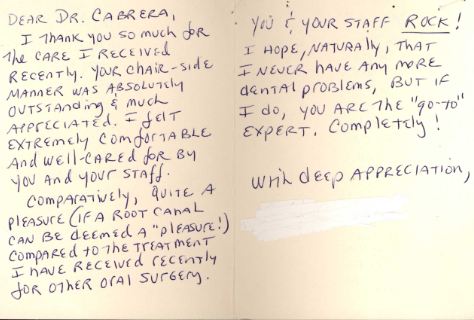 DEAR DR. CABRERA,
I THANK YOU SO MUCH FOR
THE CARE I RECEIVED
RECENTLY. YOUR CHAIR-SIDE
MANNER WAS ABSOLUTELY
OUTSTANDING & MUCH
APPRECIATED. I FELT
EXTREMELY COMFORTABLE
AND WELL-CARED FOR BY
YOU AND YOUR STAFF.
COMPARATIVELY, QUITE A
PLEASURE (IF A ROOT CANAL
CAN BE DEEMED A "PLEASURE!)
COMPARED TO THE TREATMENT
I HAVE RECEIVED RECENTLY
FOR OTHER ORAL SURGERY.
YOU & YOUR STAFF ROCK!
I HOPE, NATURALLY, THAT
I NEVER HAVE ANY MORE
DENTAL PROBLEMS, BUT IF
I DO, YOU ARE THE "GO-TO"
EXPERT. COMPLETELY!
WITH DEEP APPRECIATION,